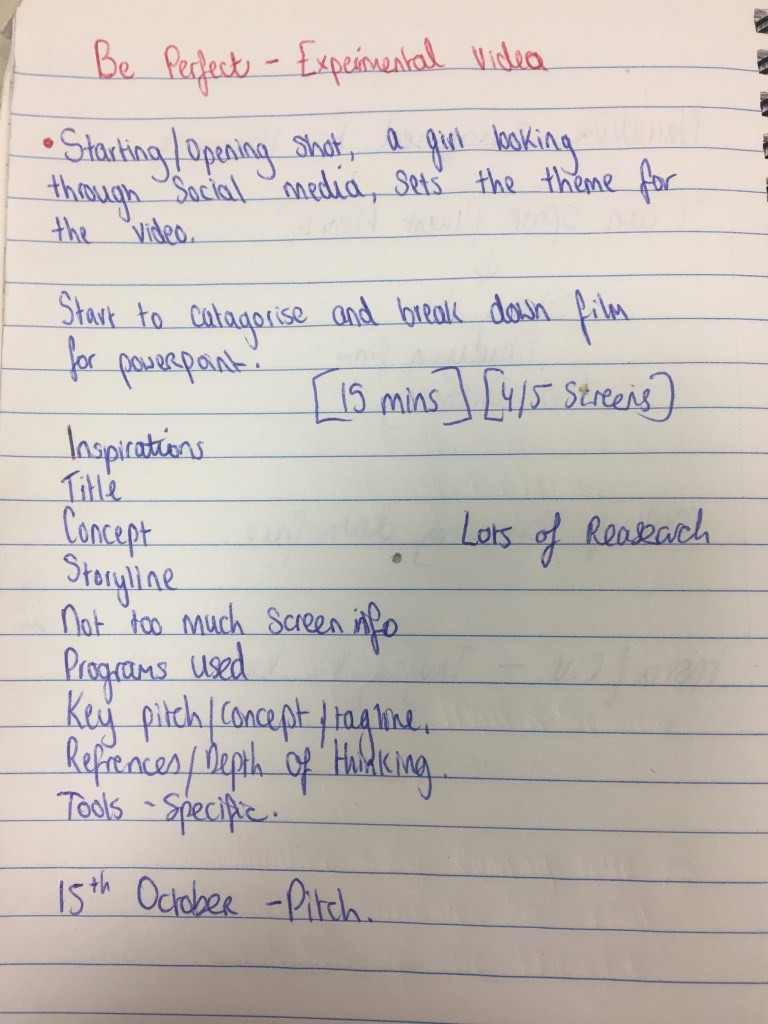 Be Perfect - Expeimental video
• Starting/Opening shot, a girl looking
through Social media, Sets the theme for
the video.
Start to catagorise and break down film
for powerpoint.
[15 mins] [4/5 Screens]
Inspirations
Title
Concept
Lots of Reasearch
Storyline
Not too much Screen info
Programs used
Key pitch/Concept/tagline.
Refrences/Depth of thinking.
Tools - Specific.
15th October - Pitch.